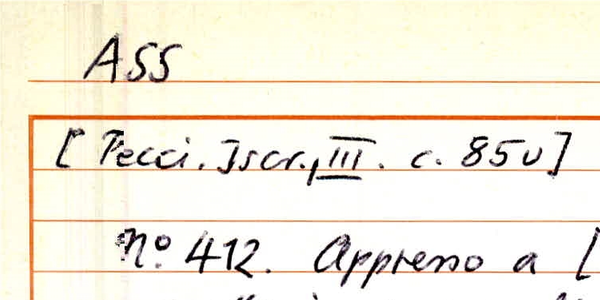 ASS
[Pecci. Iscr., III. c. 85v]
Nº. 412. Appresso a [